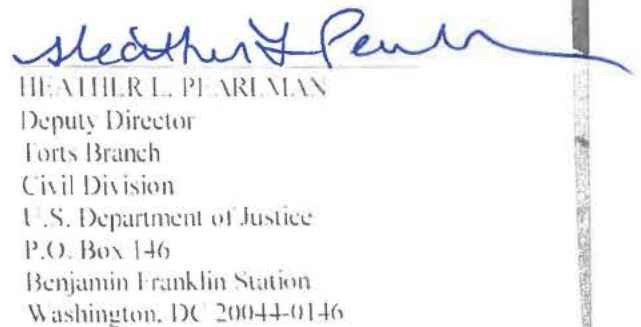 Heather L Pearlman
HEATHER L. PEARLMAN
Deputy Director
Torts Branch
Civil Division
U.S. Department of Justice
P.O. Box 146
Benjamin Franklin Station
Washington, DC 20044-0146